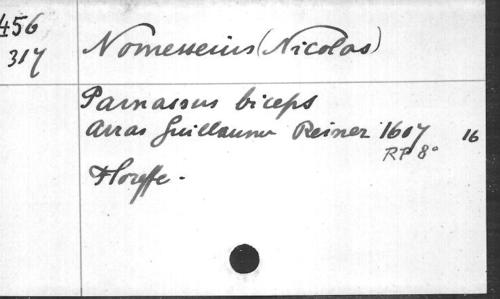 456
317
Nomesseius (Nicolas)
Parnassus biceps
Arras Guillaume Reiner 1607 16
RP 8°
Floreffe.